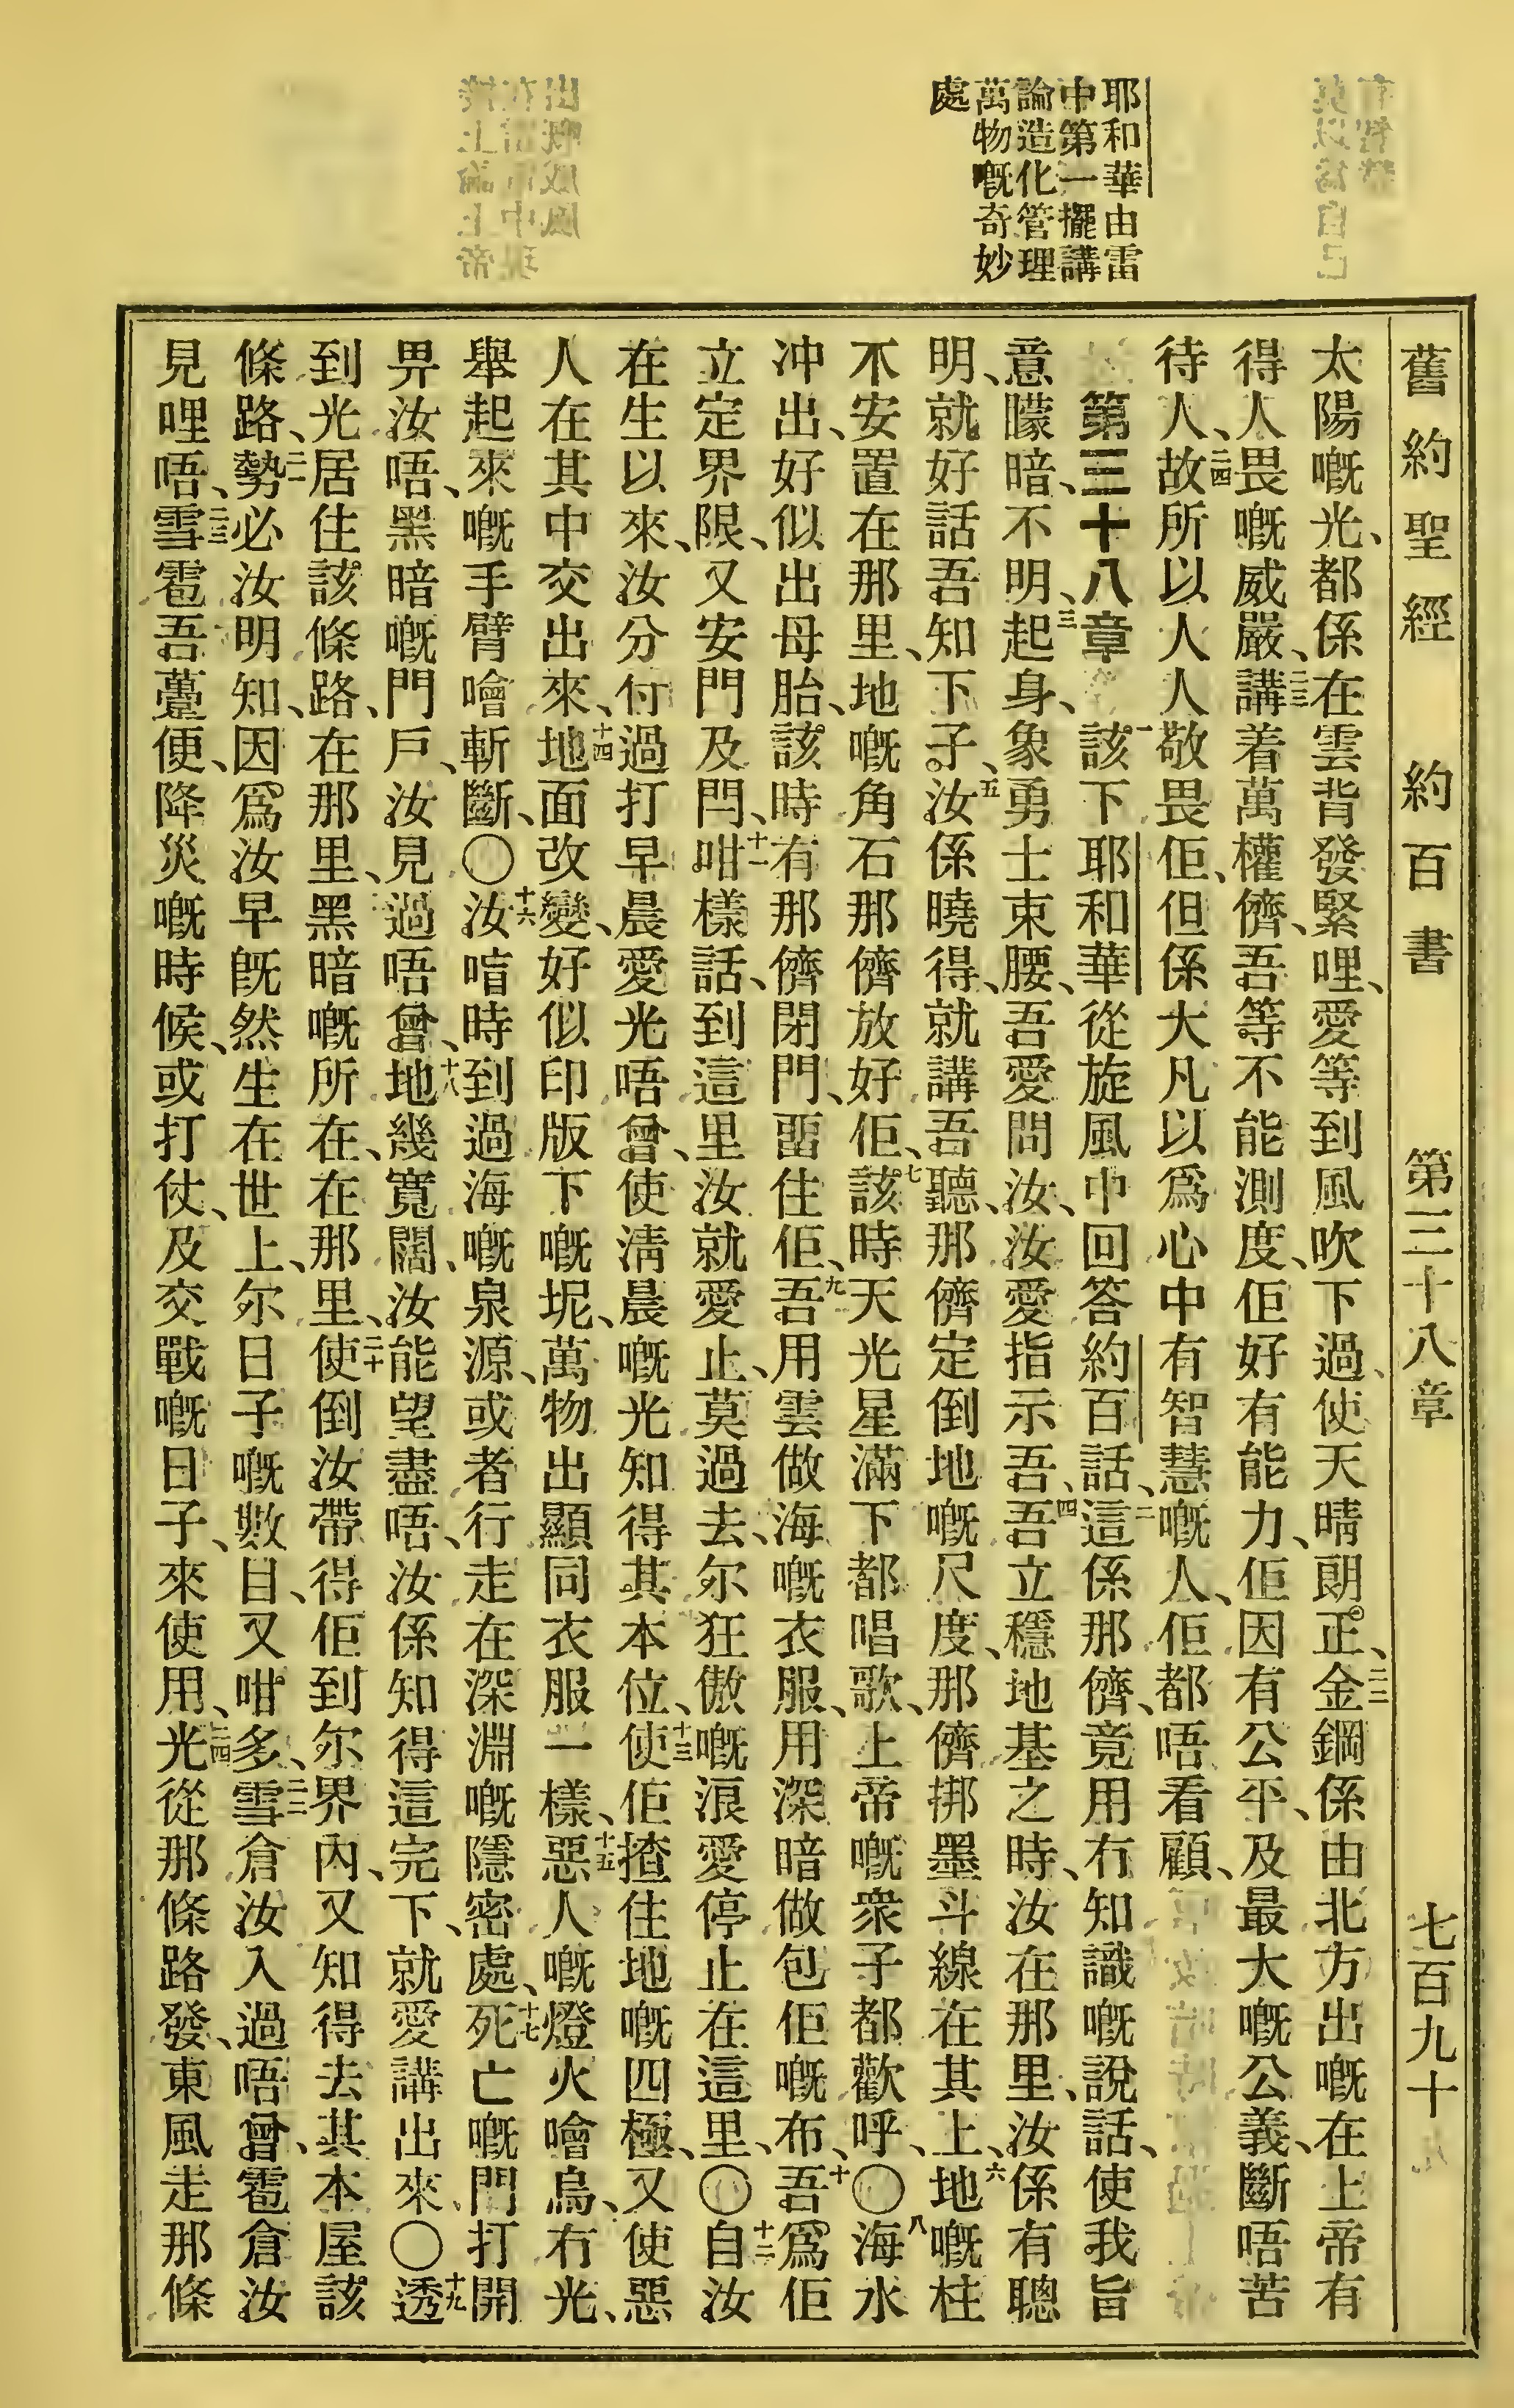 舊約聖經　約百書　第三十八章　七百九十
耶和華由雷
中第一擺講
論造化管理
萬物嘅奇妙
處
太陽嘅光、都係在雲背發緊哩、愛等到風吹下過、使天晴朗正、二二金鋼係由北方出嘅在上帝有
得人畏嘅威嚴、二三講着萬權儕、吾等不能測度、佢好有能力、佢因有公平、及最大嘅公義、斷唔苦
待人、二四故所以人人敬畏佢、但係大凡以爲心中有智慧嘅人、佢都唔看顧、
第三十八章　一該下耶和華從旋風中回答約百話、二這係那儕、竟用冇知識嘅說話、使我旨
意矇暗、不明、三起身、象勇士束腰、吾愛問汝、汝愛指示吾、四吾立穩地基之時、汝在那里、汝係有聰
明、就好話吾知下子、五汝係曉得、就講吾聽、那儕定倒地嘅尺度、那儕挷墨斗線在其上、六地嘅柱
不安置在那里、地嘅角石那儕放好佢、七該時天光星滿下都唱歌、上帝嘅衆子都歡呼、〇八海水
冲出、好似出母胎、該時有那儕閉門、畱住佢、九吾用雲做海嘅衣服、用深暗做包佢嘅布、十吾爲佢
立定界限、又安門及閂、十一咁樣話、到這里汝就愛止、莫過去、尔狂傲嘅浪愛停止在這里、〇十二自汝
在生以來、汝分付過打早晨愛光唔曾、使淸晨嘅光知得其本位、十三使佢揸住地嘅四極、又使惡
人在其中交出來、十四地面改變、好似印版下嘅坭、萬物出顯同衣服一樣、十五惡人嘅燈火噲烏、冇光、
舉起來嘅手臂噲斬斷、〇十六汝㫓時到過海嘅泉源、或者行走在深淵嘅隱密處、十七死亡嘅門打開
畀汝唔、黑暗嘅門戶、汝見過唔曾、十八地幾寬闊、汝能望盡唔、汝係知得這完下、就愛講出來、〇十九透
到光居住該條路、在那里、黑暗嘅所在、在那里、二十使倒汝帶得佢到尔界內、又知得去其本屋該
條路、二一勢必汝明知、因爲汝早旣然生在世上、尔日子嘅數目、又咁多、二二雪倉汝入過唔曾、雹倉汝
見哩唔、二三雪雹吾躉便、降災嘅時候、或打仗、及交戰嘅日子、來使用、二四光從那條路發、東風走那條